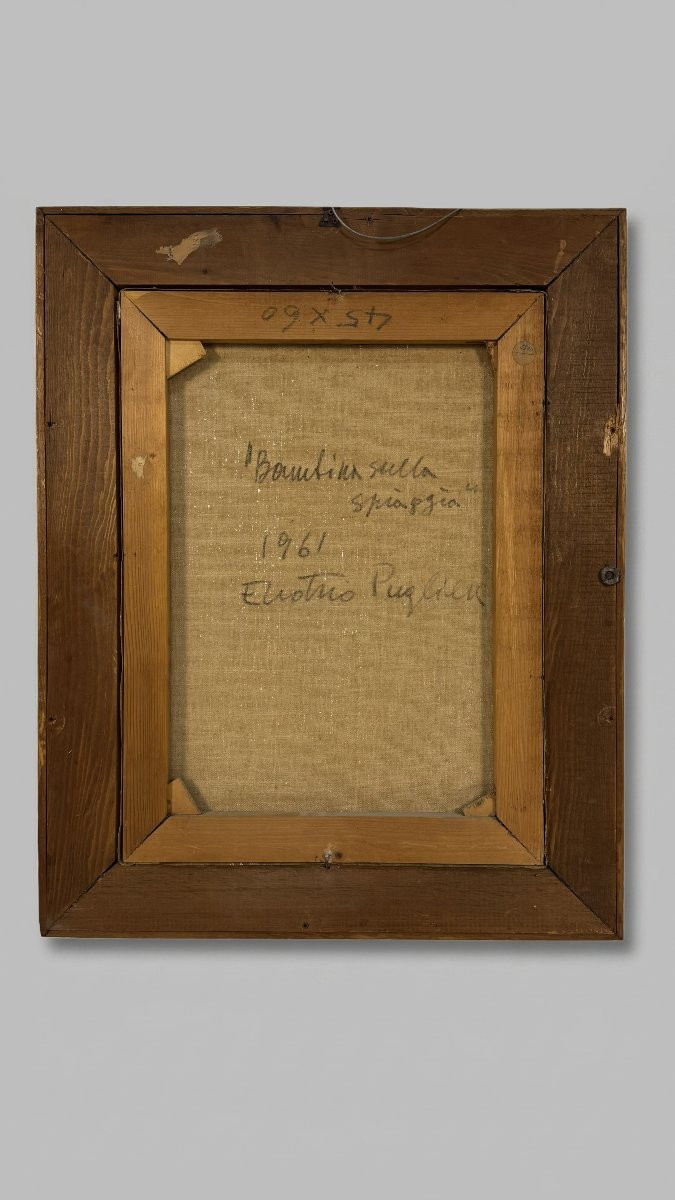 45 x 60
"Bambina sulla
spiaggia"
1961
Enotrio Pugliese